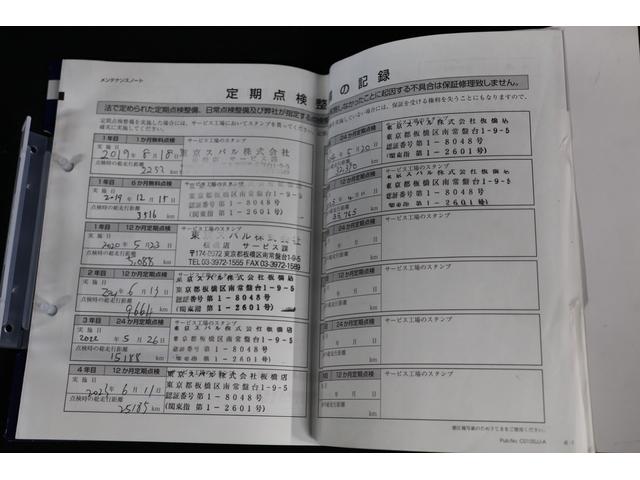 メンテナンスノート
定期点検整備の記録
法で定められた定期点検整備、日常点検整備及び弊社が指定する
しなかったことに起因する不具合は保証修理致しません。
定期点検整備を実施した場合には、サービス工場においてスタンプを貰ってください。
していない場合は、保証を受ける権利を失うことにもなりますので、
確実に実施してください。
1年目 1か月無料点検 サービス工場のスタンプ
実施日 2019年8月18日
点検時の総走行距離 km
東京スバル株式会社
板橋店 サービス課
1年目 6か月無料点検 サービス工場のスタンプ
実施日 2019年12月15日
点検時の総走行距離 3516 km
東京スバル株式会社板橋店
東京都板橋区南常盤台1-9-5
認証番号第1-8048号
(関東指第1-2601号)
1年目 12か月定期点検 サービス工場のスタンプ
実施日 2020年5月23日
点検時の総走行距離 5088 km
東京スバル株式会社
板橋店 サービス課
〒174-0072 東京都板橋区南常盤台1-9-5
TEL 03-3972-1555 FAX03-3972-1589
2年目 12か月定期点検 サービス工場のスタンプ
実施日 2021年6月13日
点検時の総走行距離 9664 km
東京スバル株式会社板橋店
東京都板橋区南常盤台1-9-5
認証番号第1-8048号
(関東指第1-2601号)
3年目 24か月定期点検 サービス工場のスタンプ
実施日 2022年5月26日
点検時の総走行距離 15188 km
東京スバル株式会社板橋店
東京都板橋区南常盤台1-9-5
認証番号第1-8048号
(関東指第1-2601号)
4年目 12か月定期点検 サービス工場のスタンプ
実施日 2023年6月11日
点検時の総走行距離 25185 km
東京スバル株式会社板橋店
東京都板橋区南常盤台1-9-5
認証番号第1-8048号
(関東指第1-2601号)
24か月定期点検 サービス工場のスタンプ
年5月20日
km
東京スバル株式会社板橋店
東京都板橋区南常盤台1-9-5
認証番号第1-8048号
(関東指第1-2601号)
12か月定期点検
年4月日
35765 km
東京スバル株式会社板橋店
東京都板橋区南常盤台1-9-5
認証番号第1-8048号
(関東指第1-2601号)
24か月定期点検 サービス工場のスタンプ
年月日
km
12か月定期点検 サービス工場のスタンプ
年月日
km
24か月定期点検 サービス工場のスタンプ
年月日
km
12か月定期点検 サービス工場のスタンプ
年月日
km
Pub.No. C0105JJ-A